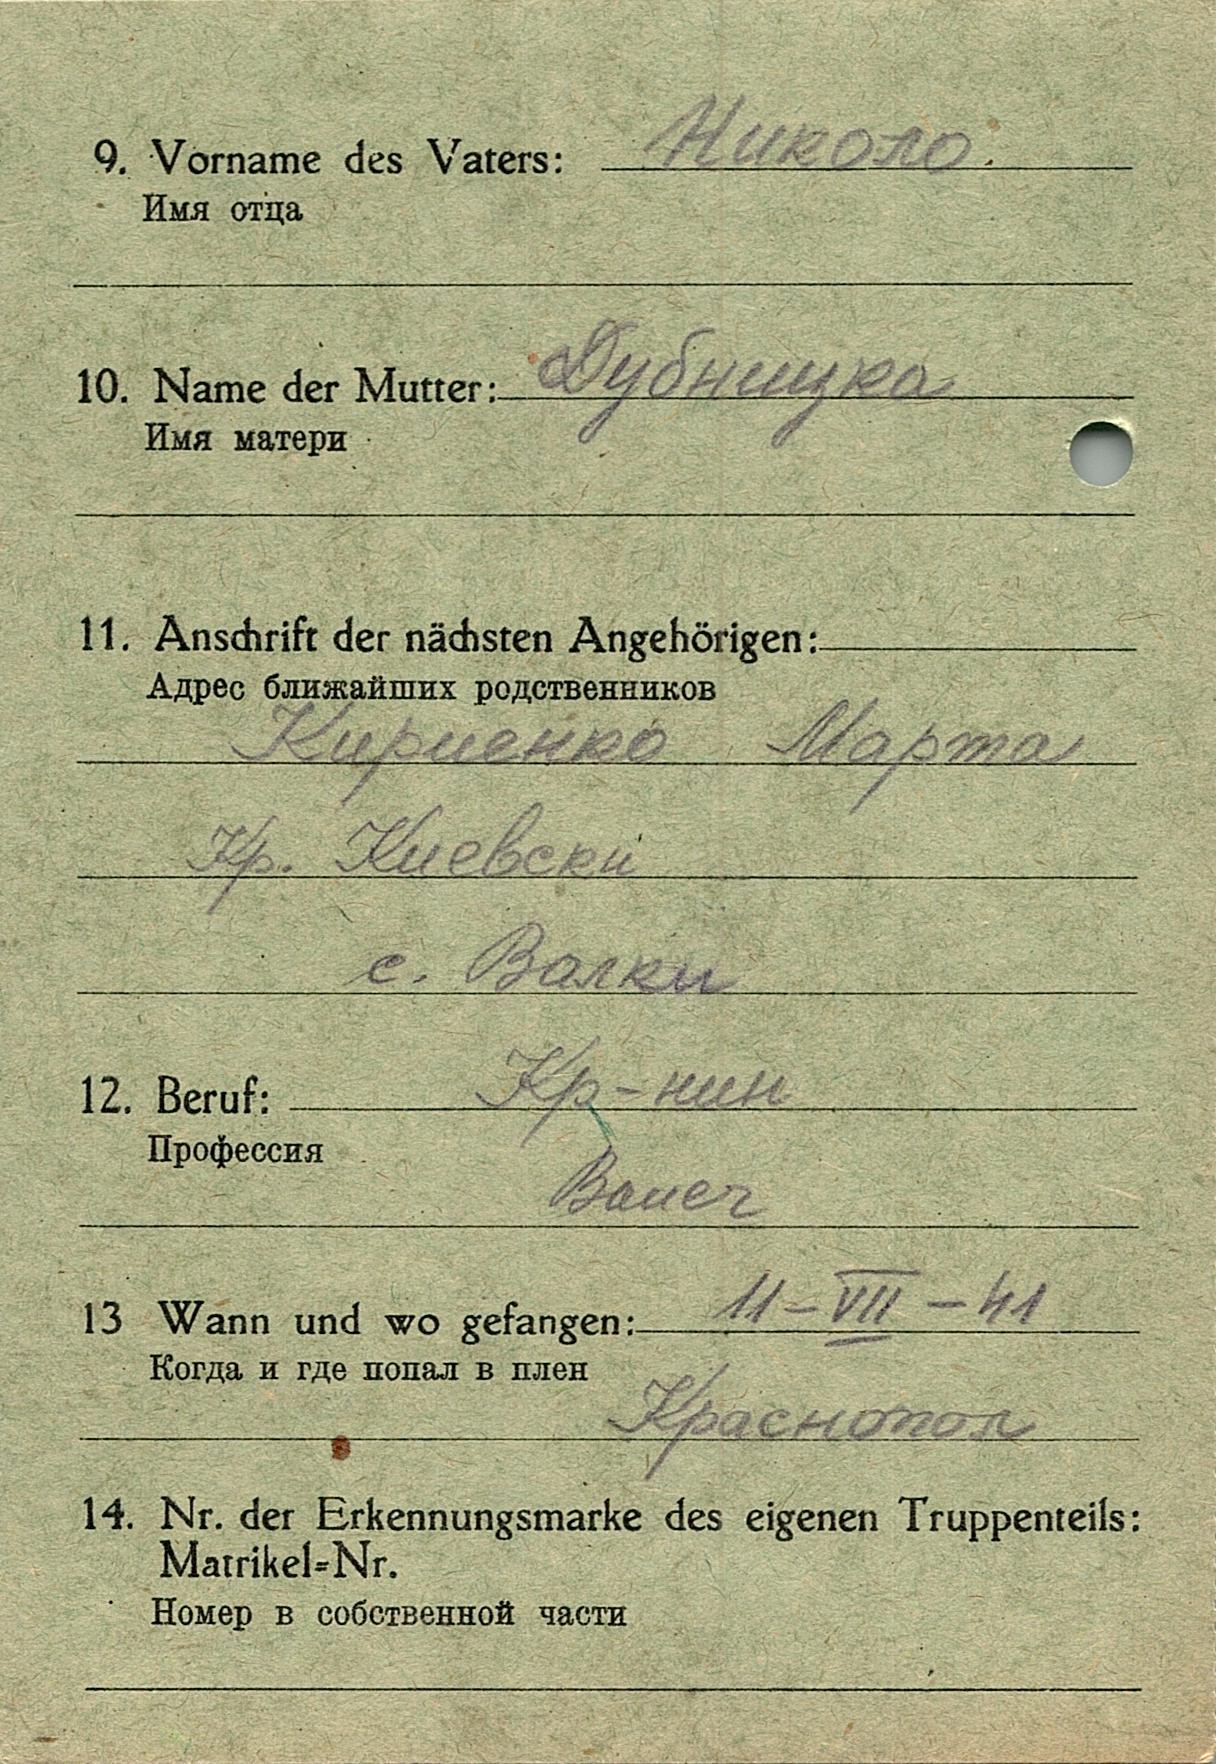 9. Vorname des Vaters: Николо
Имя отца
10. Name der Mutter: Дубницка
Имя матери
11. Anschrift der nächsten Angehörigen:
Адрес ближайших родственников
Кириенко Марта
Кр. Киевски
с. Валки
12. Beruf: Кр-нин
Профессия
13 Wann und wo gefangen: 11-VII-41
Когда и где попал в плен
Краснопол
14. Nr. der Erkennungsmarke des eigenen Truppenteils:
Matrikel=Nr.
Номер в собственной части